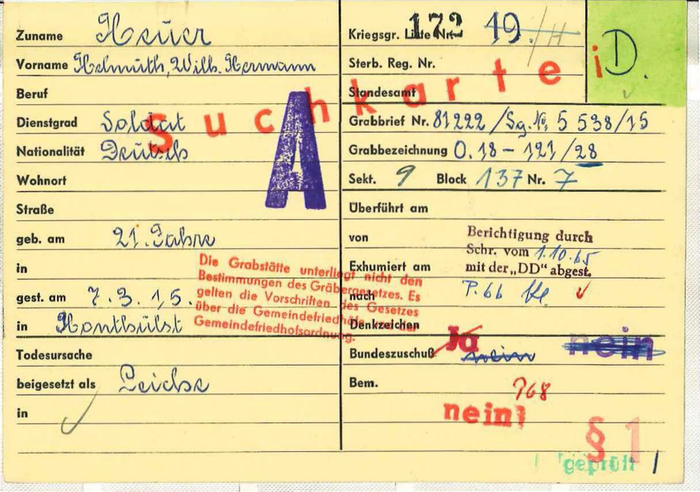 Zuname Heuer
Vorname Helmuth, Wilh. Hermann
Beruf
Dienstgrad Soldat
Nationalität Deutsch
Wohnort
Straße
geb. am 21. Jahre
in
gest. am 7.3.15.
in Honthülst
Todesursache
beigesetzt als Leiche
in
Suchkartei
A
Die Grabstätte unterliegt nicht den
Bestimmungen des Gräbergesetzes. Es
gelten die Vorschriften des Gesetzes
über die Gemeindefriedhöfe und der
Gemeindefriedhofsordnung.
Kriegsgr. Liste Nr. 172 19
D.
Sterb. Reg. Nr.
Standesamt
Grabbrief Nr. 81222/Sg. Nr. 5 538/15
Grabbezeichnung O.18-121/28
Sekt. 9 Block 137 Nr. 7
Überführt am
von
Berichtigung durch
Schr. vom 1.10.65
mit der „DD" abgest.
Exhumiert am
nach P. 66
Denkzeichen
Bundeszuschuß Ja nein nein
Bem. 768
nein!
§ 1
geprüft